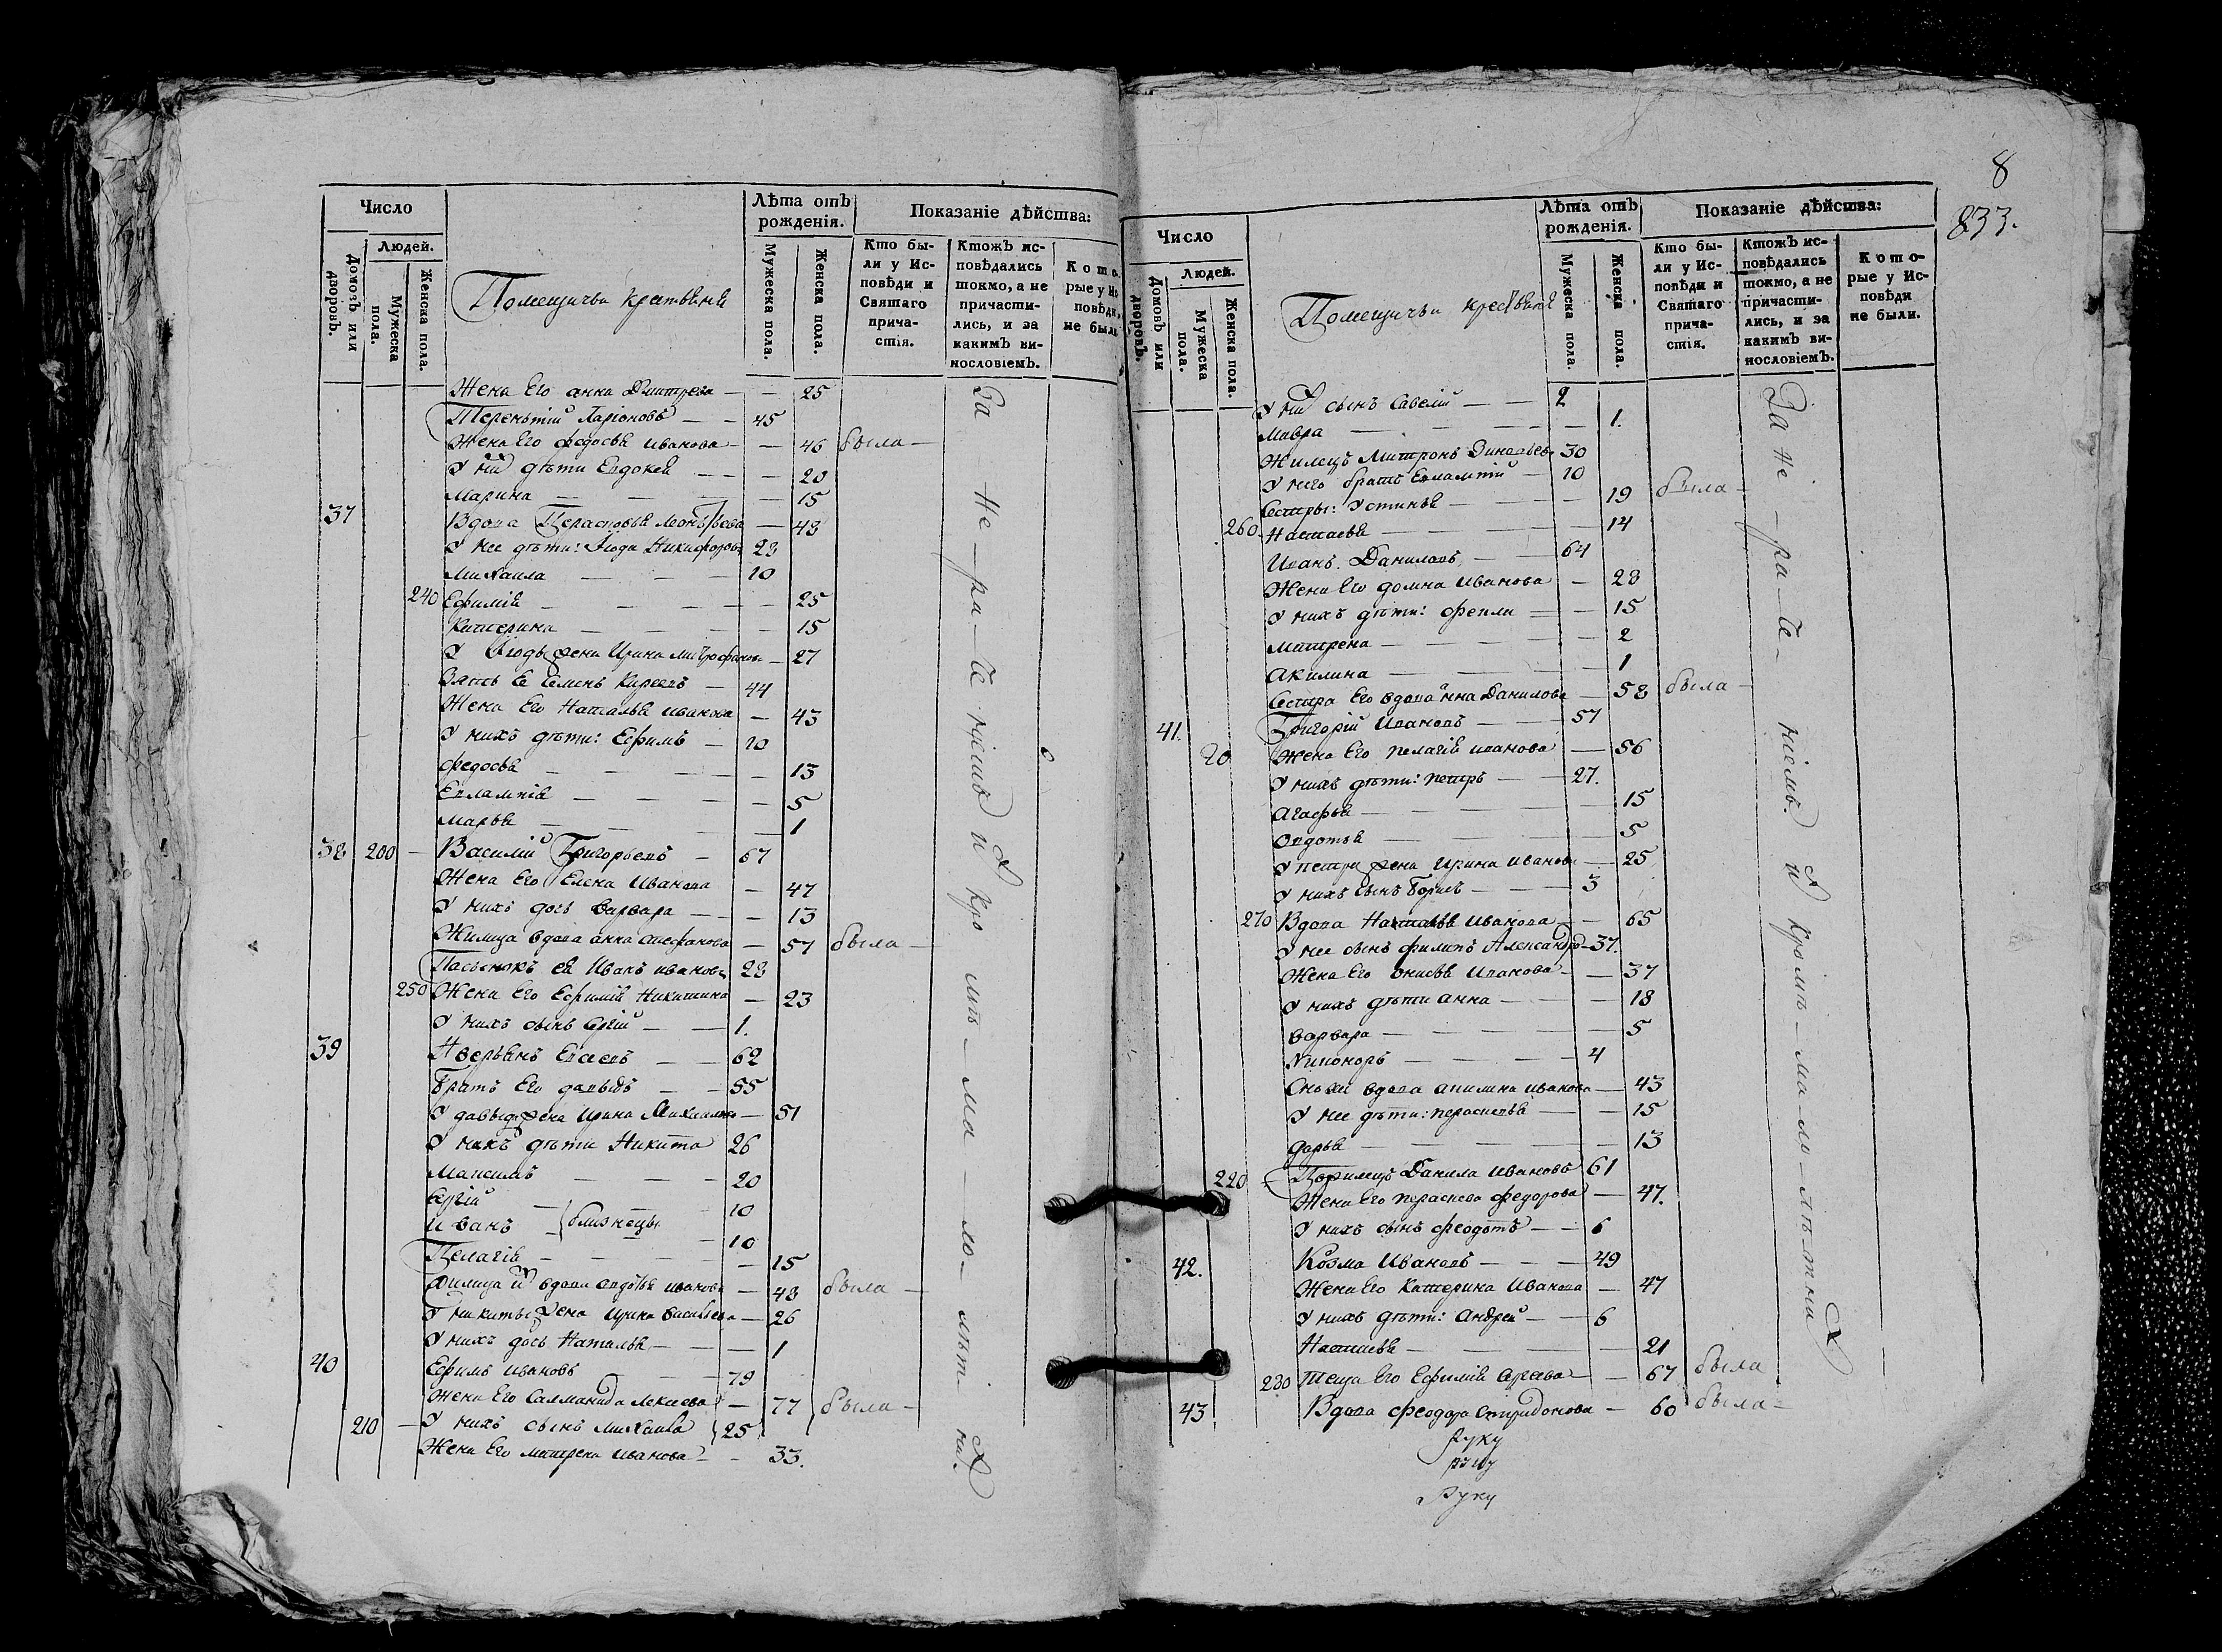 Число
Людей.
Домовъ или дворовъ.
Мужеска пола.
Женска пола.
Помещичьи крестьяне
Лѣта отъ рожденія.
Мужеска пола.
Женска пола.
Показаніе дѣйства:
Кто бы-
ли у Ис-
повѣди и
Святаго
прича-
стія.
Ктожъ ис-
повѣдались
токмо, а не
причасти-
лись, и за
какимъ ви-
нословіемъ.
Кото-
рые у Ис-
повѣди
не были
Жена Его анна Дмитрева — — 25
Терентій Ларіоновъ — — 45
Жена Его федосья иванова — — 46 была —
У них дѣти Евдокея — — — 20
Марина — — — — 15
37 Вдова Парасковья — 43
У нее дѣти: Никифоровъ 23
Михаила — — — 10
240 Ефимія — — — — 25
Катерина — — — — 15
У жена Ирина Митрофанова — 27
Зять Ее Семенъ Киреевъ — 44
Жена Его Наталья иванова — 43
У нихъ дѣти: Ефимъ — 10
федосья — — — — 13
Евлампія — — — — 5
Марья — — — — 1
38 200 — Василій Григорьевъ — 67
Жена Его Елена Иванова — 47
У нихъ дочь Варвара — — — 13
Жилица вдова анна Стефанова — 57 была —
Пасынокъ ея Иванъ ивановъ 28
250 Жена Его Ефимія Никитина — 23
У нихъ сынъ Сергій — — 1.
39 Аверьянъ Евсеевъ — — 62
Братъ Его давыдъ — — 55
У давыда жена Ирина Михайлова — 51
У нихъ дѣти Никита 26
Максимъ — — — 20
Сергій — 10
Иванъ — близнецы — 10
Пелагія — — — — 15
Жилица их вдова авдотья иванова — 48 была —
У никиты жена Ирина Васильева — 26
У нихъ дочь Наталья — — — 1
40 Ефимъ ивановъ — — 79
Жена Его Саломанида Алексеева — 77 была —
210 — У нихъ сынъ Михаила 25
Жена Его Матрена иванова — — 33.
За не — ра — че нiемъ и кро мѣ — ма ло — лѣт ни.
8
833.
Число
Людей.
Домовъ или дворовъ.
Мужеска пола.
Женска пола.
Помещичьи крестьяне
Лѣта отъ рожденія.
Мужеска пола.
Женска пола.
Показаніе дѣйства:
Кто бы-
ли у Ис-
повѣди и
Святаго
прича-
стія.
Ктожъ ис-
повѣдались
токмо, а не
причасти-
лись, и за
какимъ ви-
нословіемъ.
Кото-
рые у Ис-
повѣди
не были.
У них сынъ Савелій — — 2
Мавра — — — — — 1.
Жилецъ Митронъ 30
У него братъ Евлампій — 10
Сестры: Устинья — — — 19 была —
260. Настасья — — — — 14
Иванъ Даниловъ — — 64
Жена Его домна Иванова — 28
У нихъ дѣти: фекла — — 15
Матрена — — — — 2
Акилина — — — — 1
Сестра Его вдова анна Данилова — 58 была —
41. Григорій Ивановъ — — 57
20 Жена Его пелагія иванова — 56
У нихъ дѣти: петръ — — 27.
Агафья — — — — 15
Овдотья — — — — 5
У петра жена Ирина иванова — 25
У нихъ сынъ Борисъ — — — 3
270 Вдова Наталья Иванова — — 65
У нее сынъ филипъ Александровъ — 37.
Жена Его Анисья Иванова — — 37
У нихъ дѣти анна — — — 18
Варвара — — — — — 5
Никоноръ — — — — 4
Сноха вдова акилина иванова — 43
У нее дѣти: парасковья — — 15
дарья — — — — — 13
220 Данила Ивановъ 61
Жена Его парасковa федорова — 47.
У нихъ сынъ феодотъ — — 6
42. Козма Ивановъ — — — 49
Жена Его Катерина Иванова — 47
У нихъ дѣти: Андрей — — 6
Настасья — — — — — 21
280 Теща Его Ефимія — 67 была
43 Вдова феодора Спиридонова — 60 была —
За не — ра — че — нiемъ. и кромѣ — ма — ло — лѣтни
Руку
руку
Руку